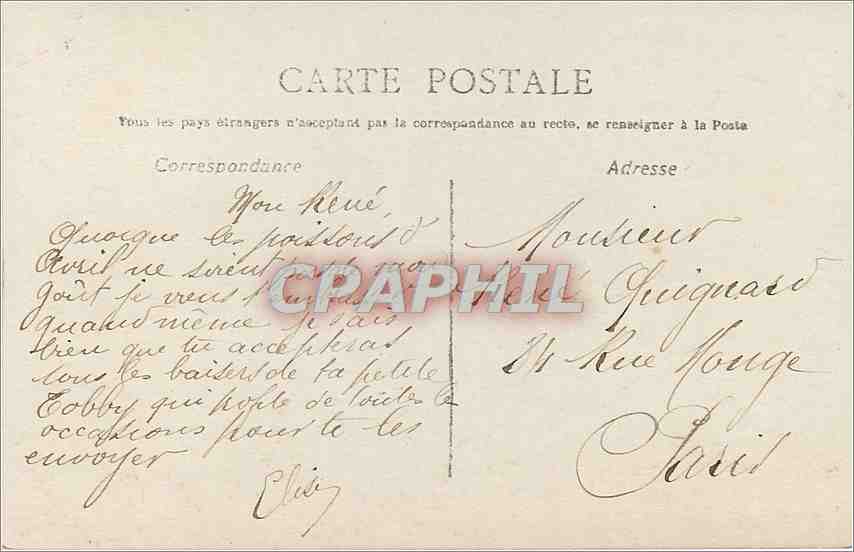 CARTE POSTALE
Tous les pays étrangers n'acceptant pas la correspondance au recto, se renseigner à la Poste
Correspondance
Mon René,
Quoique les poissons d
Avril ne soient pas de mon
goût je viens t'en
quand même je sais
bien que tu accepteras
tous les baisers de ta petite
Tobby qui profite de toutes les
occasions pour te les
envoyer
Elise
Adresse
Monsieur
René Guignard
24 Rue Monge
Paris
CPAPHIL